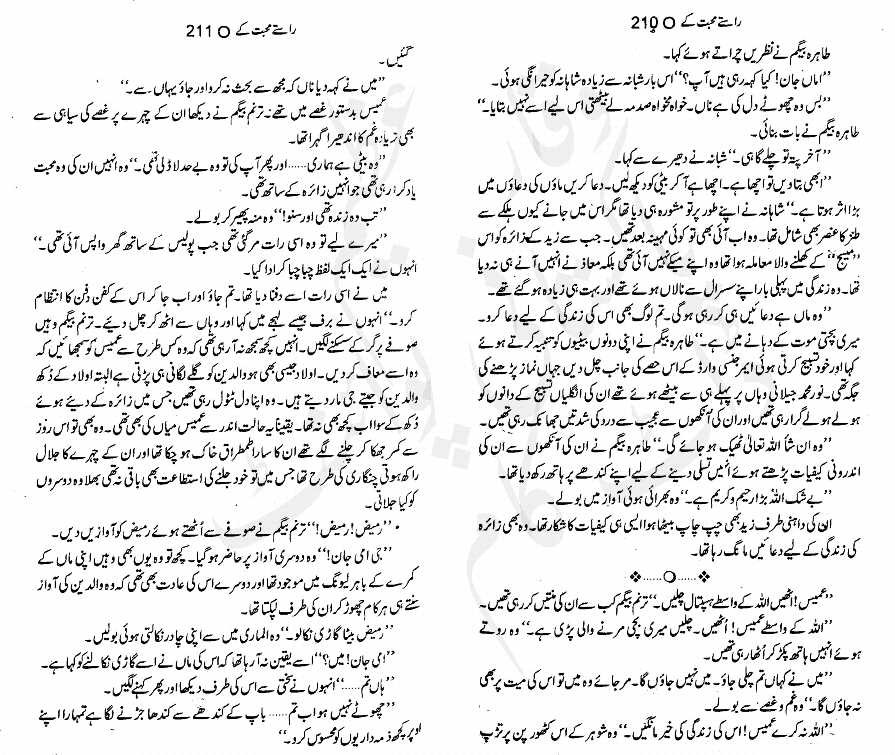 راستے محبت کے O 210
طاہرہ بیگم نے نظریں چراتے ہوئے کہا۔
”اماں جان! کیا کہہ رہی ہیں آپ؟“ اس بار شبانہ سے زیادہ شاہانہ کو حیرانگی ہوئی۔
”بس وہ چھوٹے دل کی ہے ناں۔ خواہ مخواہ صدمہ لے بیٹھتی اس لیے اسے نہیں بتایا۔“
طاہرہ بیگم نے بات بنائی۔
”آخر پتہ تو چلے گا ہی۔“ شبانہ نے دھیرے سے کہا۔
”ابھی بتا دیں تو اچھا ہے۔ اچھا ہے آ کر بیٹی کو دیکھ لیں۔ دعا کریں ماؤں کی دعاؤں میں
بڑا اثر ہوتا ہے۔“ شاہانہ نے اپنے طور پر تو مشورہ ہی دیا تھا مگر اس میں جانے کیوں ہلکے سے
طنز کا عنصر بھی شامل تھا۔ وہ اب آئی بھی تو کوئی مہینہ بعد تھیں۔ جب سے زید کے زائرہ کو اس
”مسیج“ کے کھلنے والا معاملہ ہوا تھا وہ اپنے میکے نہیں آئی تھی بلکہ معاذ نے انہیں آنے ہی نہ دیا
تھا۔ وہ زندگی میں پہلی بار اپنے سسرال سے نالاں ہوئے تھے اور بہت ہی زیادہ ہو گئے تھے۔
”وہ ماں ہے دعائیں ہی کر رہی ہو گی۔ تم لوگ بھی اس کی زندگی کے لیے دعا کرو۔
میری بچی موت کے دہانے میں ہے۔“ طاہرہ بیگم نے اپنی دونوں بیٹیوں کو تنبیہ کرتے ہوئے
کہا اور خود تسبیح کرتی ہوئی ایمرجنسی وارڈ کے اس حصے کی جانب چل دیں جہاں نماز پڑھنے کی
جگہ تھی۔ نور محمد جیلانی وہاں پر پہلے ہی سے بیٹھے ہوئے تھے ان کی انگلیاں تسبیح کے دانوں کو
ہولے ہولے گرا رہی تھیں اور ان کی آنکھوں سے عجیب سے درد کی شدتیں جھانک رہی تھیں۔
”وہ ان شاَ اللہ تعالیٰ ٹھیک ہو جائے گی۔“ طاہرہ بیگم نے ان کی آنکھوں سے ان کی
اندرونی کیفیات پڑھتے ہوئے انہیں تسلی دینے کے لیے اپنے کندھے پر ہاتھ رکھ دیا تھا۔
”بے شک اللہ بڑا رحیم و کریم ہے۔“ وہ بھرائی ہوئی آواز میں بولے۔
ان کی داہنی طرف زید بھی چپ چاپ بیٹھا ہوا ایسی ہی کیفیات کا شکار تھا۔ وہ بھی زائرہ
کی زندگی کے لیے دعائیں مانگ رہا تھا۔
❖......O......❖
”عمیس! اٹھیں اللہ کے واسطے ہسپتال چلیں۔“ ترنم بیگم کب سے ان کی منتیں کر رہی تھیں۔
”اللہ کے واسطے عمیس! اٹھیں۔ چلیں میری بچی مرنے والی پڑی ہے۔“ وہ روتے
ہوئے انہیں ہاتھ پکڑ کر اُٹھا رہی تھیں۔
”میں نے کہا ناں تم چلی جاؤ۔ میں نہیں جاؤں گا۔ مر جائے وہ میں تو اس کی میت پر بھی
نہ جاؤں گا۔“ وہ غم و غصے سے بولے۔
”اللہ نہ کرے عمیس! اس کی زندگی کی خیر مانگیں۔“ وہ شوہر کے اس کٹھور پن پر تڑپ
راستے محبت کے O 211
گئیں۔
”میں نے کہہ دیا ناں کہ مجھ سے بحث نہ کرو اور جاؤ یہاں سے۔“
عمیس بدستور غصے میں تھے نہ ترنم بیگم نے دیکھا ان کے چہرے پر غصے کی سیاہی سے
بھی زیادہ غم کا اندھیرا گہرا تھا۔
”وہ بیٹی ہے ہماری...... اور پھر آپ کی تو وہ بے حد لاڈلی تھی۔“ وہ انہیں ان کی وہ محبت
یاد کرا رہی تھی جو انہیں زائرہ کے ساتھ تھی۔
”تب وہ زندہ تھی اور سنو!“ وہ منہ پھیر کر بولے۔
”میرے لیے تو وہ اسی رات مر گئی تھی جب پولیس کے ساتھ گھر واپس آئی تھی۔“
انہوں نے ایک ایک لفظ چبا چبا کر ادا کیا۔
میں نے اسی رات اسے دفنا دیا تھا۔ تم جاؤ اور اب جا کر اس کے کفن دفن کا انتظام
کرو۔“ انہوں نے برف جیسے لہجے میں کہا اور وہاں سے اٹھ کر چل دیئے۔ ترنم بیگم وہیں
صوفے پر گر کے سسکنے لگیں۔ انہیں کچھ سمجھ نہ آ رہی تھی کہ وہ کس طرح سے عمیس کو سمجھائیں کہ
وہ اسے معاف کر دیں۔ اولاد جیسی بھی ہو والدین کو گلے لگانی ہی پڑتی ہے البتہ اولاد کے دُکھ
والدین کو جیتے جی مار دیتے ہیں۔ وہ اپنا دل ٹٹول رہی تھیں جس میں زائرہ کے دیئے ہوئے
دُکھ کے سوا اب کچھ بھی نہ تھا۔ یقیناً یہ حالت اندر سے عمیس میاں کی بھی تھی۔ وہ بھی تو اس روز
سے کمر جھکا کر چلنے لگے تھے ان کا سارا طمطراق خاک ہو چکا تھا اور ان کے چہرے کا جلال
راکھ ہوتی چنگاری کی طرح تھا جس میں تو خود جلنے کی استطاعت بھی باقی نہ تھی بھلا وہ دوسروں
کو کیا جلاتی۔
”رمیض! رمیض!“ ترنم بیگم نے صوفے سے اُٹھتے ہوئے رمیض کو آوازیں دیں۔
”جی امی جان!“ وہ دوسری آواز پر حاضر ہو گیا۔ کچھ تو وہ یوں بھی وہیں اپنی ماں کے
کمرے کے باہر لیونگ میں موجود تھا اور دوسرے اس کی عادت بھی تھی کہ وہ والدین کی آواز
سنتے ہی ہر کام چھوڑ کر ان کی طرف لپکتا تھا۔
”رمیض بیٹا گاڑی نکالو۔“ وہ الماری میں سے اپنی چادر نکالتی ہوئی بولیں۔
”امی جان! میں؟“ اسے یقین نہ آ رہا تھا کہ اس کی ماں نے اسے گاڑی نکالنے کو کہا ہے۔
”ہاں تم......“ انہوں نے سختی سے اس کی طرف دیکھا اور پھر کہنے لگیں۔
”چھوٹے نہیں ہو اب تم...... باپ کے کندھے سے کندھا جڑنے لگا ہے تمہارا اپنے
اوپر کچھ ذمہ داریوں کو محسوس کرو۔“